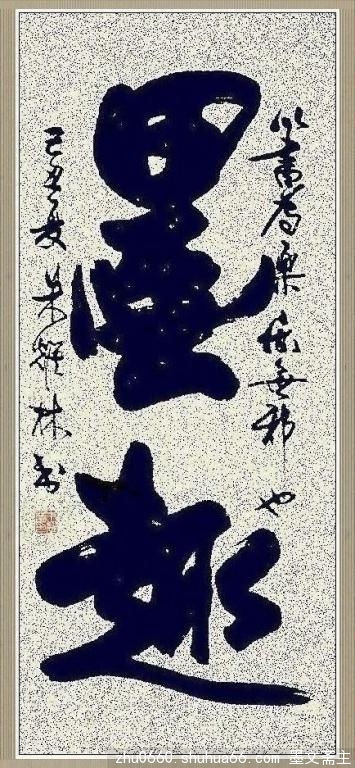 以書為樂無邪也
墨趣
己丑夏朱林书
zhu0660.shuhua66.com 墨文斋主